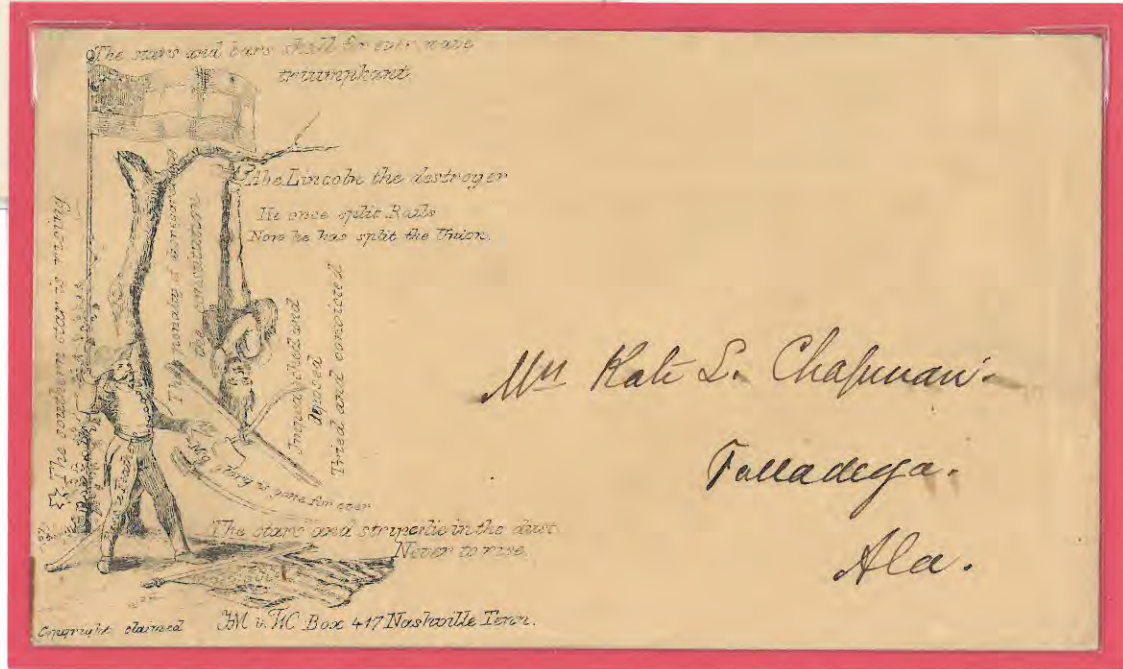 The stars and bars shall for ever wave
triumphant
Abe Lincoln the destroyer
He once split Rails
Now he has split the Union.
The southern star is rising
The penalty of
the constitution
and
Deposed
Tried and convicted
My glory is gone for ever
The stars and stripes lie in the dust
Never to rise.
Copyright claimed
Box 417 Nashville Tenn.
Mrs Kate L. Chapman
Talladega.
Ala.